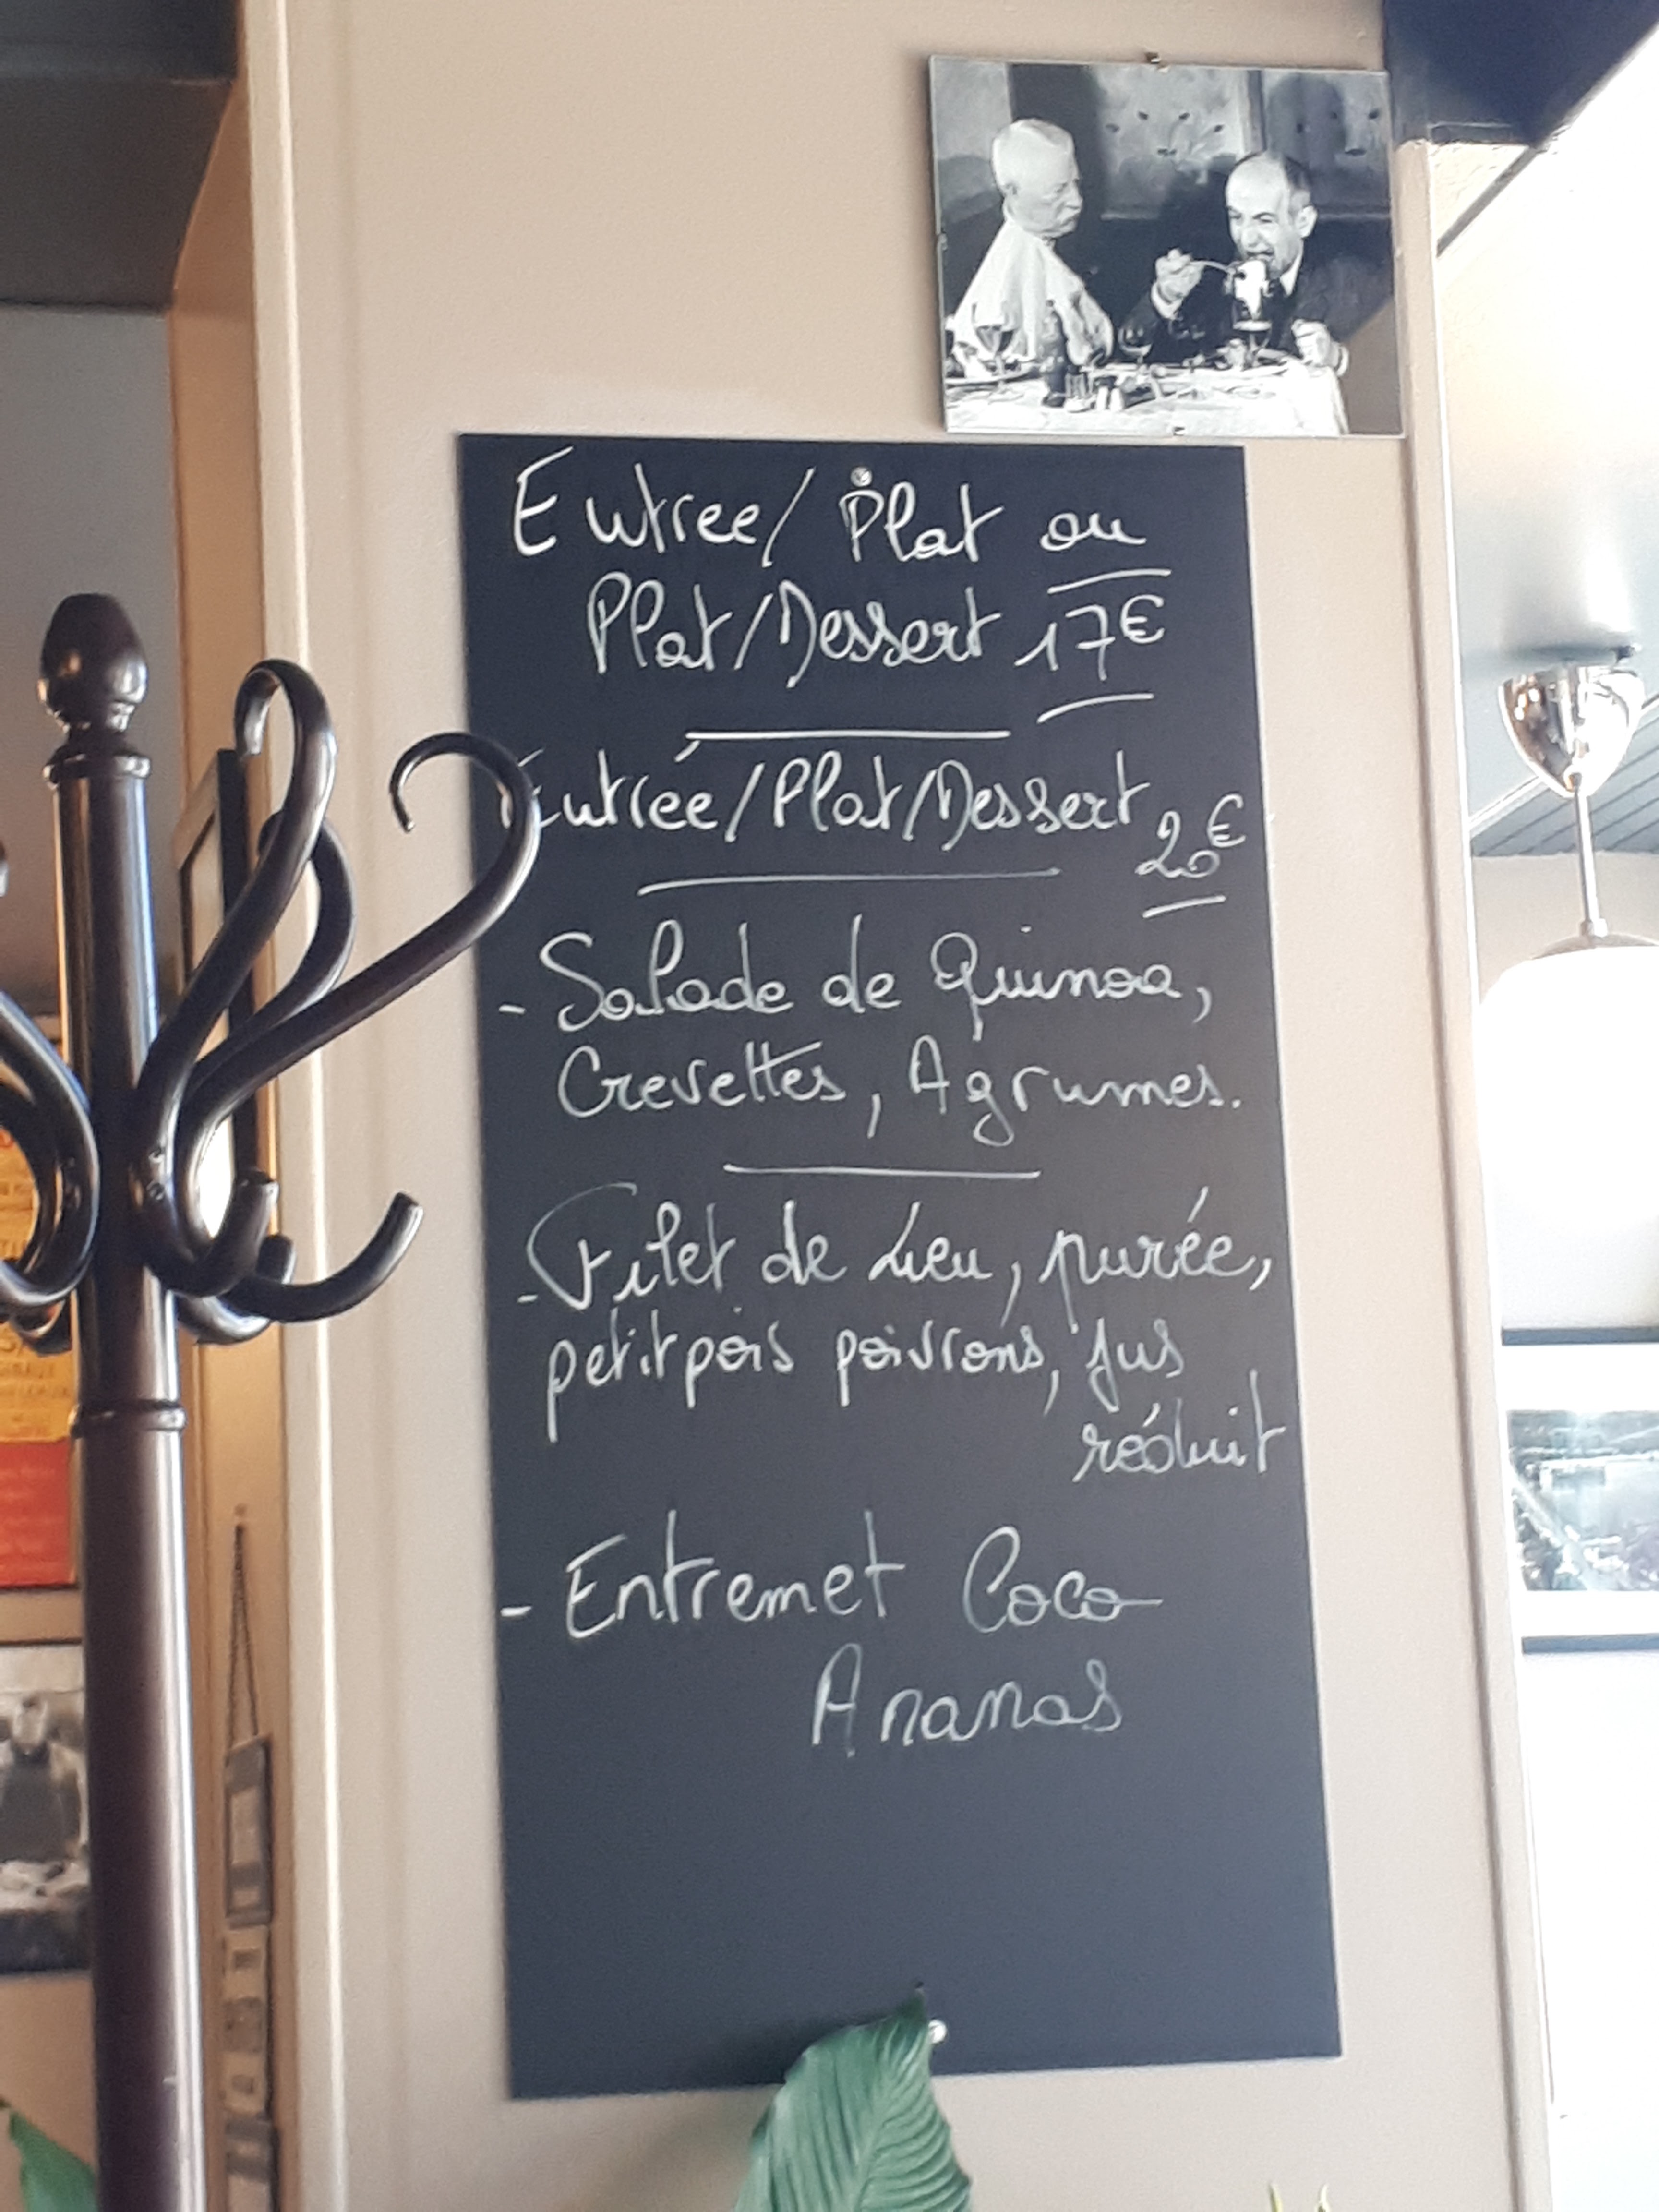 Entree/ Plat ou
Plat/Dessert 17€
Entrée/Plat/Dessert 20€
- Salade de Quinoa,
Crevettes, Agrumes.
- Filet de Lieu, purée,
petit pois poivrons, jus
réduit
- Entremet Coco
Ananas